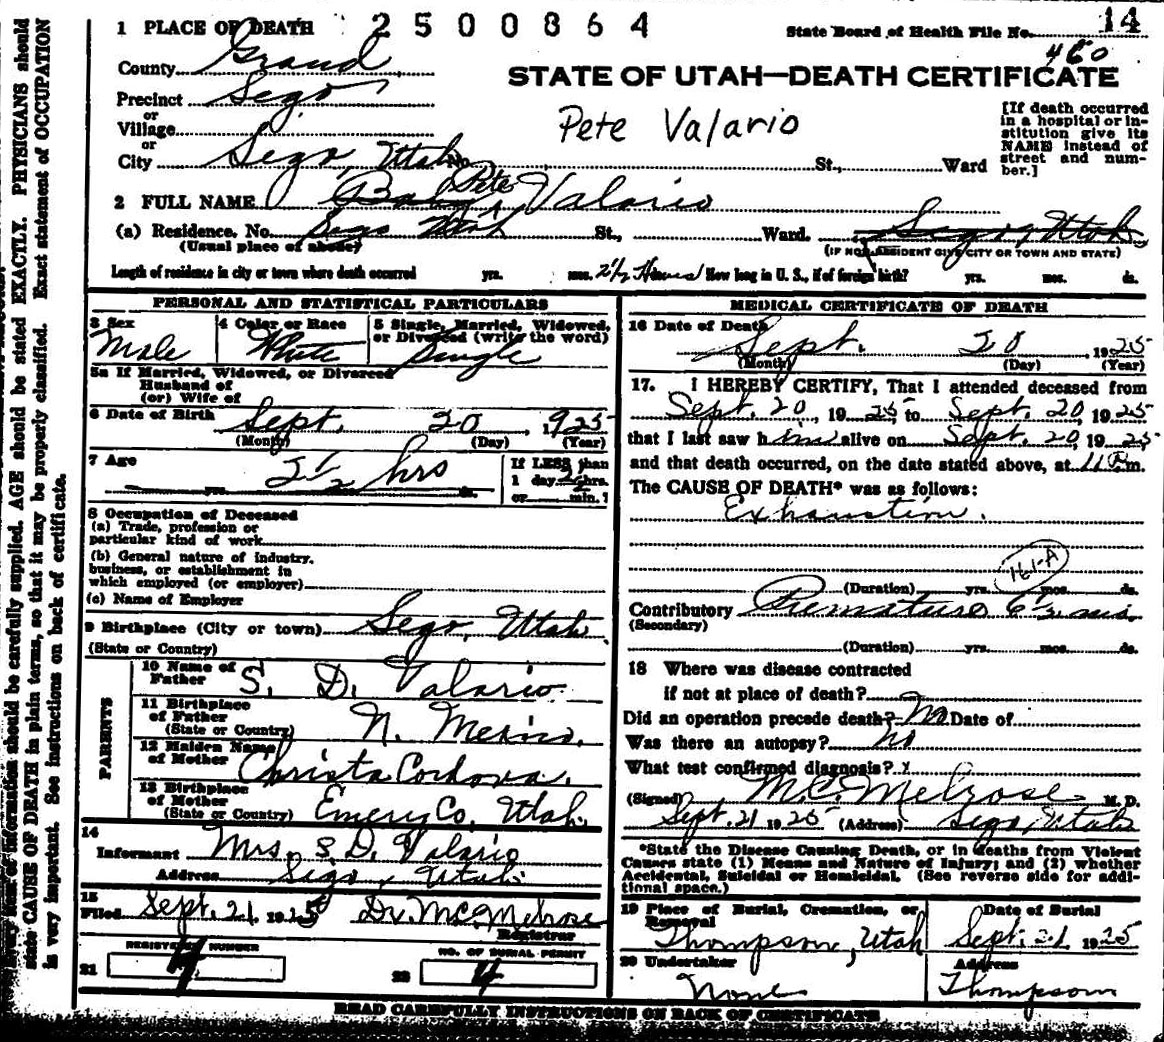 1 PLACE OF DEATH 2500864 State Board of Health File No. 14
460
County Grand
STATE OF UTAH—DEATH CERTIFICATE
Precinct Sego
or
Village
Pete Valario
[If death occurred in a hospital or institution give its NAME instead of street and number.]
or
City Sego, Utah No. St., Ward
2 FULL NAME Baby Pete Valario
(a) Residence. No. Sego Utah St., Ward. Sego, Utah
(Usual place of abode) (IF NON-RESIDENT GIVE CITY OR TOWN AND STATE)
Length of residence in city or town where death occurred yrs. mos. 2½ Hours How long in U. S., if of foreign birth? yrs. mos. ds.
PERSONAL AND STATISTICAL PARTICULARS
3 Sex Male
4 Color or Race White
5 Single, Married, Widowed, or Divorced (write the word) Single
5a If Married, Widowed, or Divorced
Husband of
(or) Wife of
6 Date of Birth Sept. 20, 1925
(Month) (Day) (Year)
7 Age 2½ hrs
yrs. ds.
If LESS than
1 day 2½ hrs.
or min.?
8 Occupation of Deceased
(a) Trade, profession or
particular kind of work
(b) General nature of industry,
business, or establishment in
which employed (or employer)
(c) Name of Employer
9 Birthplace (City or town) Sego, Utah.
(State or Country)
PARENTS
10 Name of Father S. D. Valario
11 Birthplace of Father N. Mexico.
(State or Country)
12 Maiden Name of Mother Christa Cordova.
13 Birthplace of Mother Emery Co, Utah.
(State or Country)
14
Informant Mrs. S. D. Valario
Address Sego, Utah.
15
Filed Sept. 21 1925 Dr. M.C. Melrose
Registrar
REGISTERED NUMBER NO. OF BURIAL PERMIT
21 4 22 4
MEDICAL CERTIFICATE OF DEATH
16 Date of Death Sept. 20, 1925
(Month) (Day) (Year)
17. I HEREBY CERTIFY, That I attended deceased from
Sept. 20, 1925 to Sept. 20, 1925
that I last saw him alive on Sept. 20, 1925
and that death occurred, on the date stated above, at 11 P.m.
The CAUSE OF DEATH* was as follows:
Exhaustion.
161-A
(Duration) yrs. mos. ds.
Contributory Premature 6½ mos.
(Secondary)
(Duration) yrs. mos. ds.
18 Where was disease contracted
if not at place of death?
Did an operation precede death? No Date of
Was there an autopsy? no
What test confirmed diagnosis? x
(Signed) M.C. Melrose M. D.
Sept. 21 1925 (Address) Sego, Utah
*State the Disease Causing Death, or in deaths from Violent
Causes state (1) Means and Nature of Injury; and (2) whether
Accidental, Suicidal or Homicidal. (See reverse side for addi-
tional space.)
19 Place of Burial, Cremation, or Removal Date of Burial
Thompson, Utah Sept. 21 1925
20 Undertaker Address
None Thompson
READ CAREFULLY INSTRUCTIONS ON BACK OF CERTIFICATE
information should be carefully supplied. AGE should be stated EXACTLY. PHYSICIANS should
state CAUSE OF DEATH in plain terms, so that it may be properly classified. Exact statement of OCCUPATION
is very important. See instructions on back of certificate.